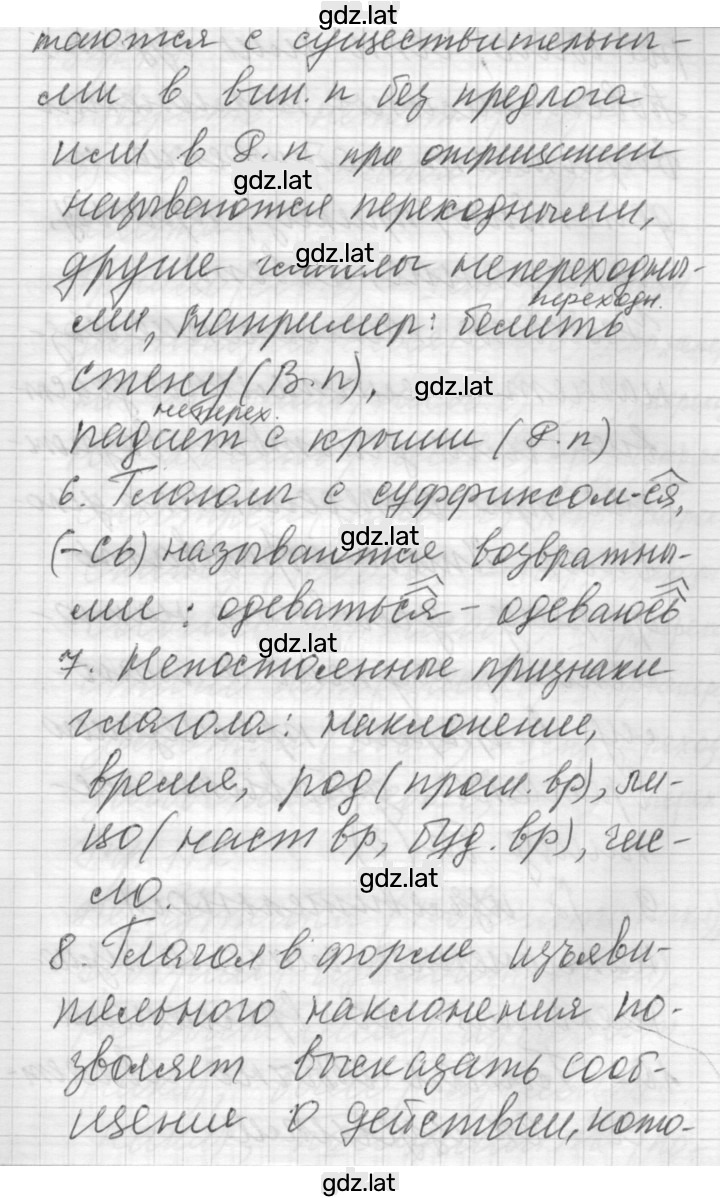 gdz.lat
таются с существительны-
ми в вин. п без предлога
или в Р.п при отрицании
gdz.lat
называются переходными,
gdz.lat
другие глаголы непереходны-
переходн.
ми, например: белить
стену (В.п),
gdz.lat
неперех.
падает с крыши (Р.п)
6. Глаголы с суффиксом -ся,
gdz.lat
(-сь) называются возвратны-
ми: одеваться - одеваюсь
gdz.lat
7. Непостоянные признаки
глагола: наклонение,
время, род (прош. вр), ли-
цо (наст вр, буд. вр), чис-
gdz.lat
ло.
8. Глагол в форме изъяви-
тельного наклонения по-
зволяет высказать сооб-
щение о действии, кото-
gdz.lat